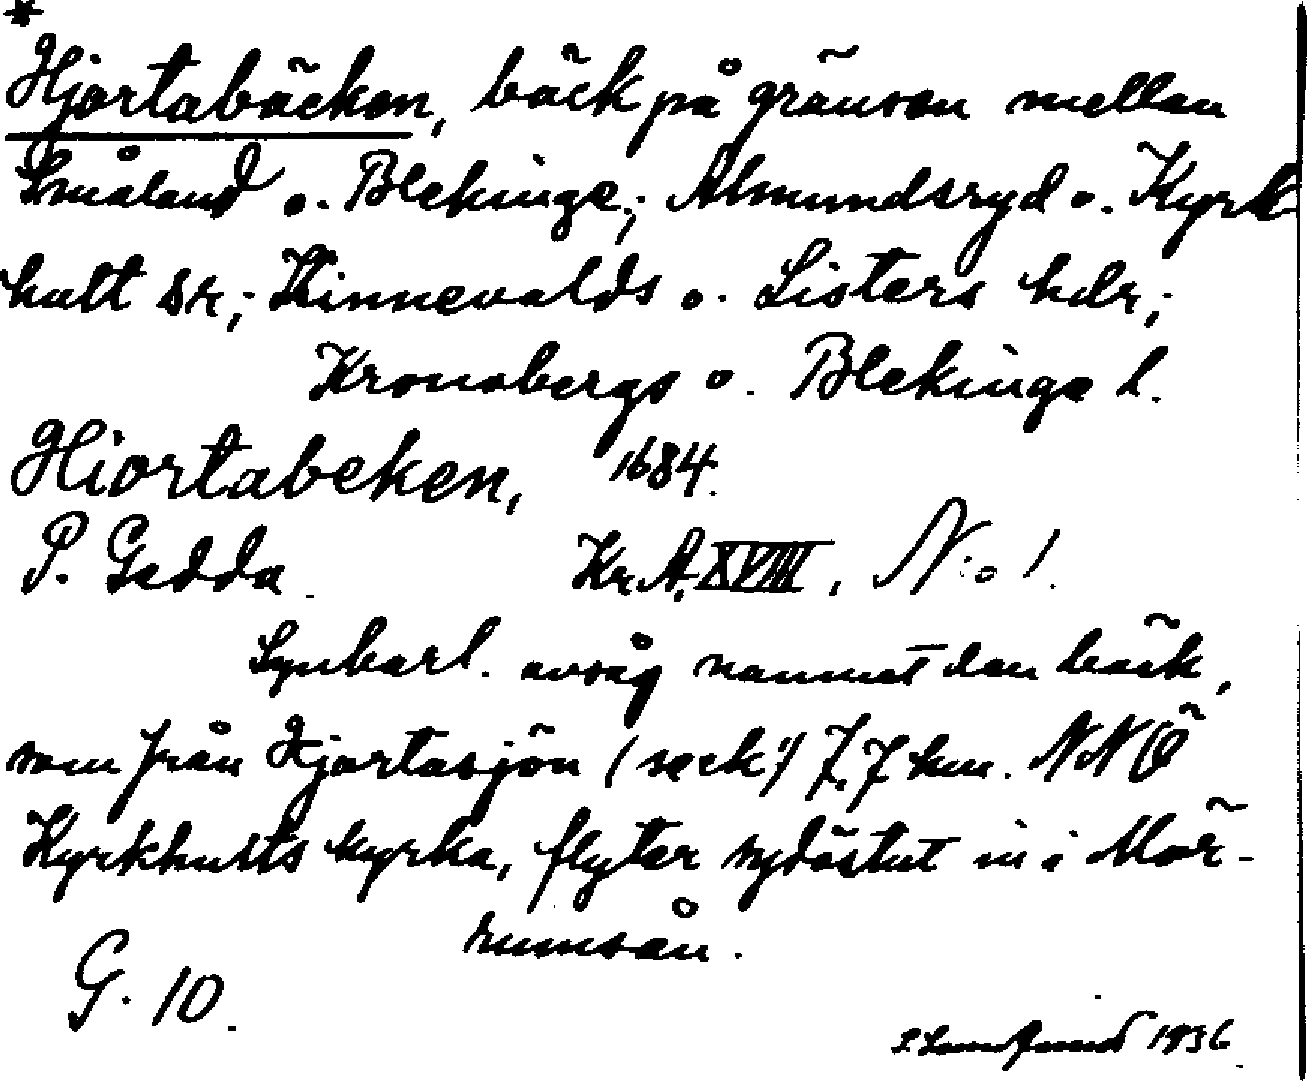 *
Hjortabäcken, bäck på gränsen mellan
Småland o. Blekinge; Almundsryd o. Kyrk
hult sr; Kinnevalds o. Listers hdr;
Kronobergs o. Blekinge l.
Hiortabeken, 1684.
P. Gedda. Kr. A. XVIII, N:o 1.
Synbarl. avsåg namnet den bäck,
som från Hjortasjön (seck!) 7,7 km. NNÖ
Kyrkhults kyrka, flyter sydöstut in i Mör-
rumsån.
G. 10.
1936